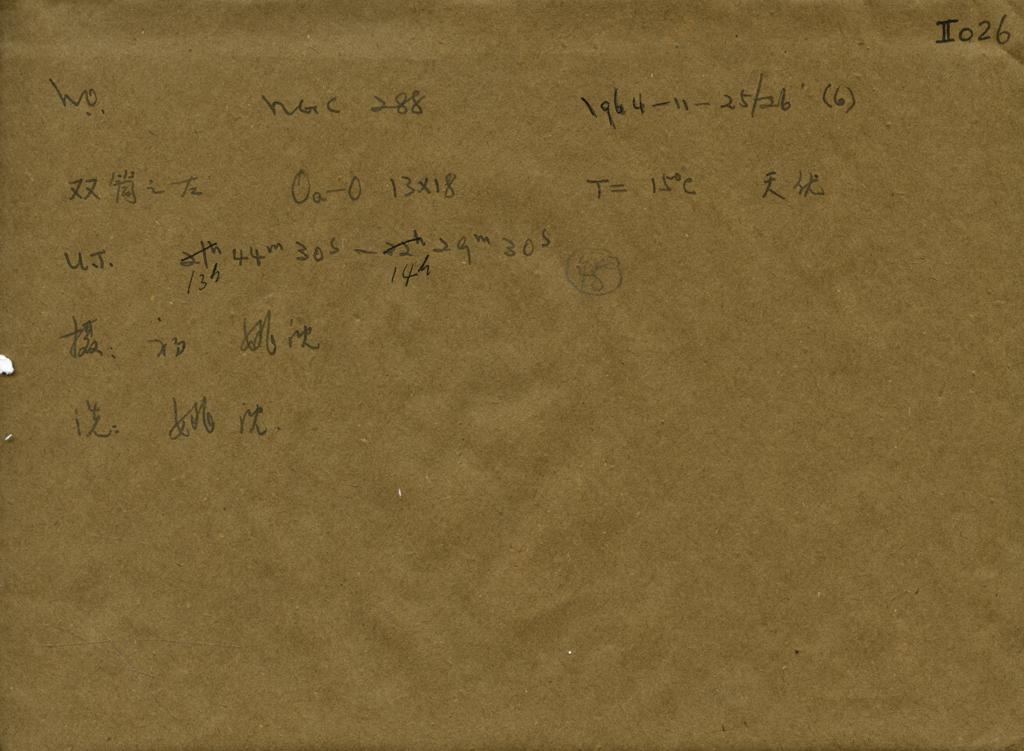 II026
No. NGC 288 1964-11-25/26 (6)
双筒之左 Oa-O 13×18 T= 15°C 天优
U.T. 21h 44m 30s - 22h 29m 30s 45
13h 14h
摄: 姚 沈
洗: 姚 沈.